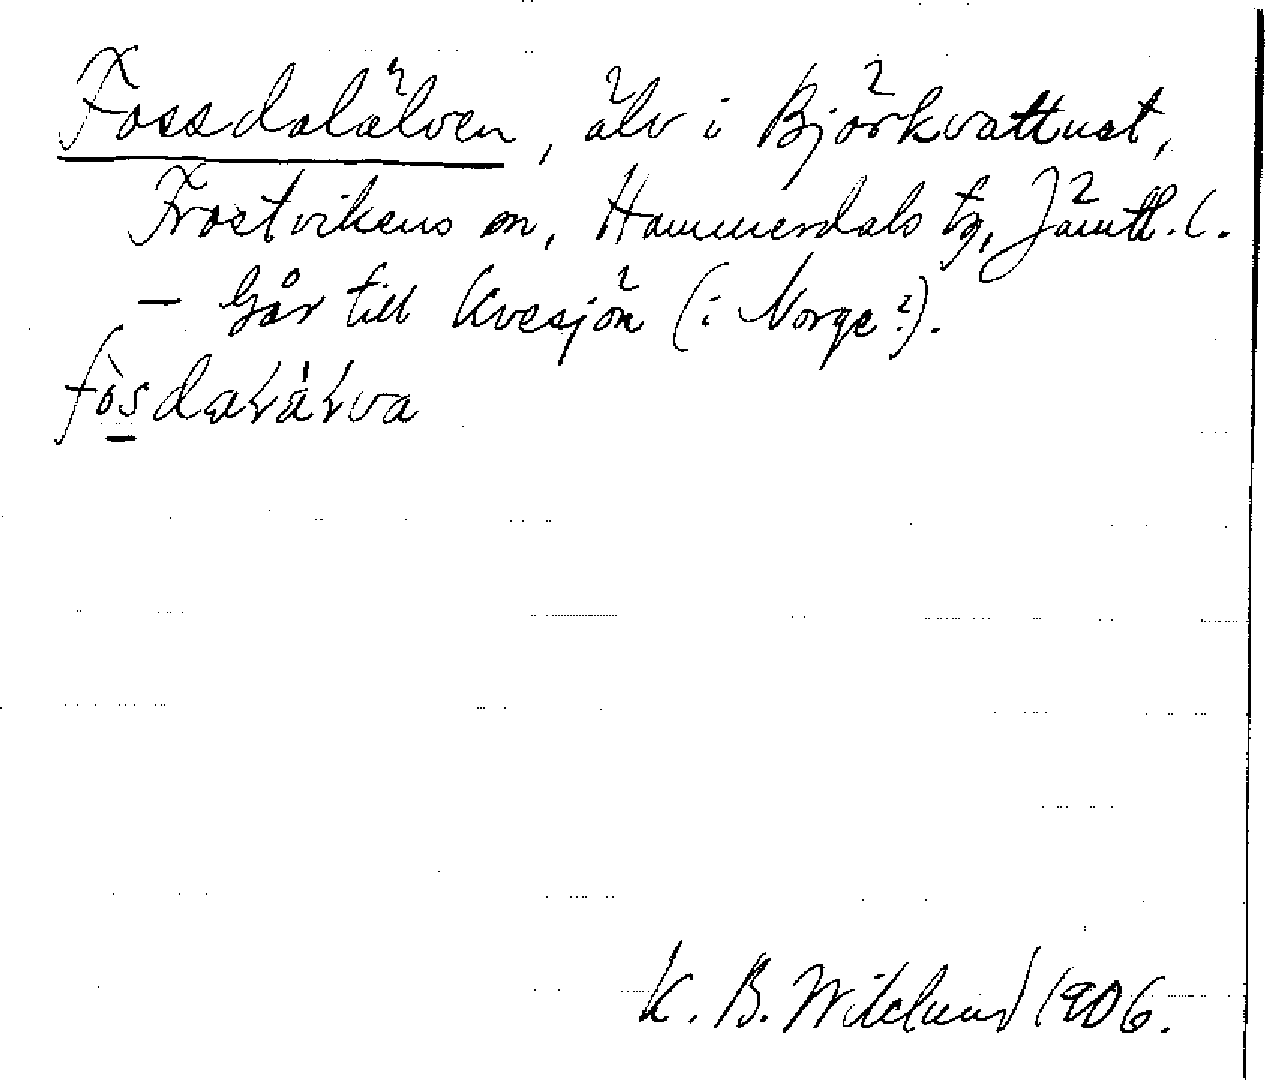 Fossdalälven, älv i Björkvattnet,
Frostvikens sn, Hammerdals tg, Jämtl. l.
— Går till Kvesjön (i Norge?).
K. B. Wiklund 1906.